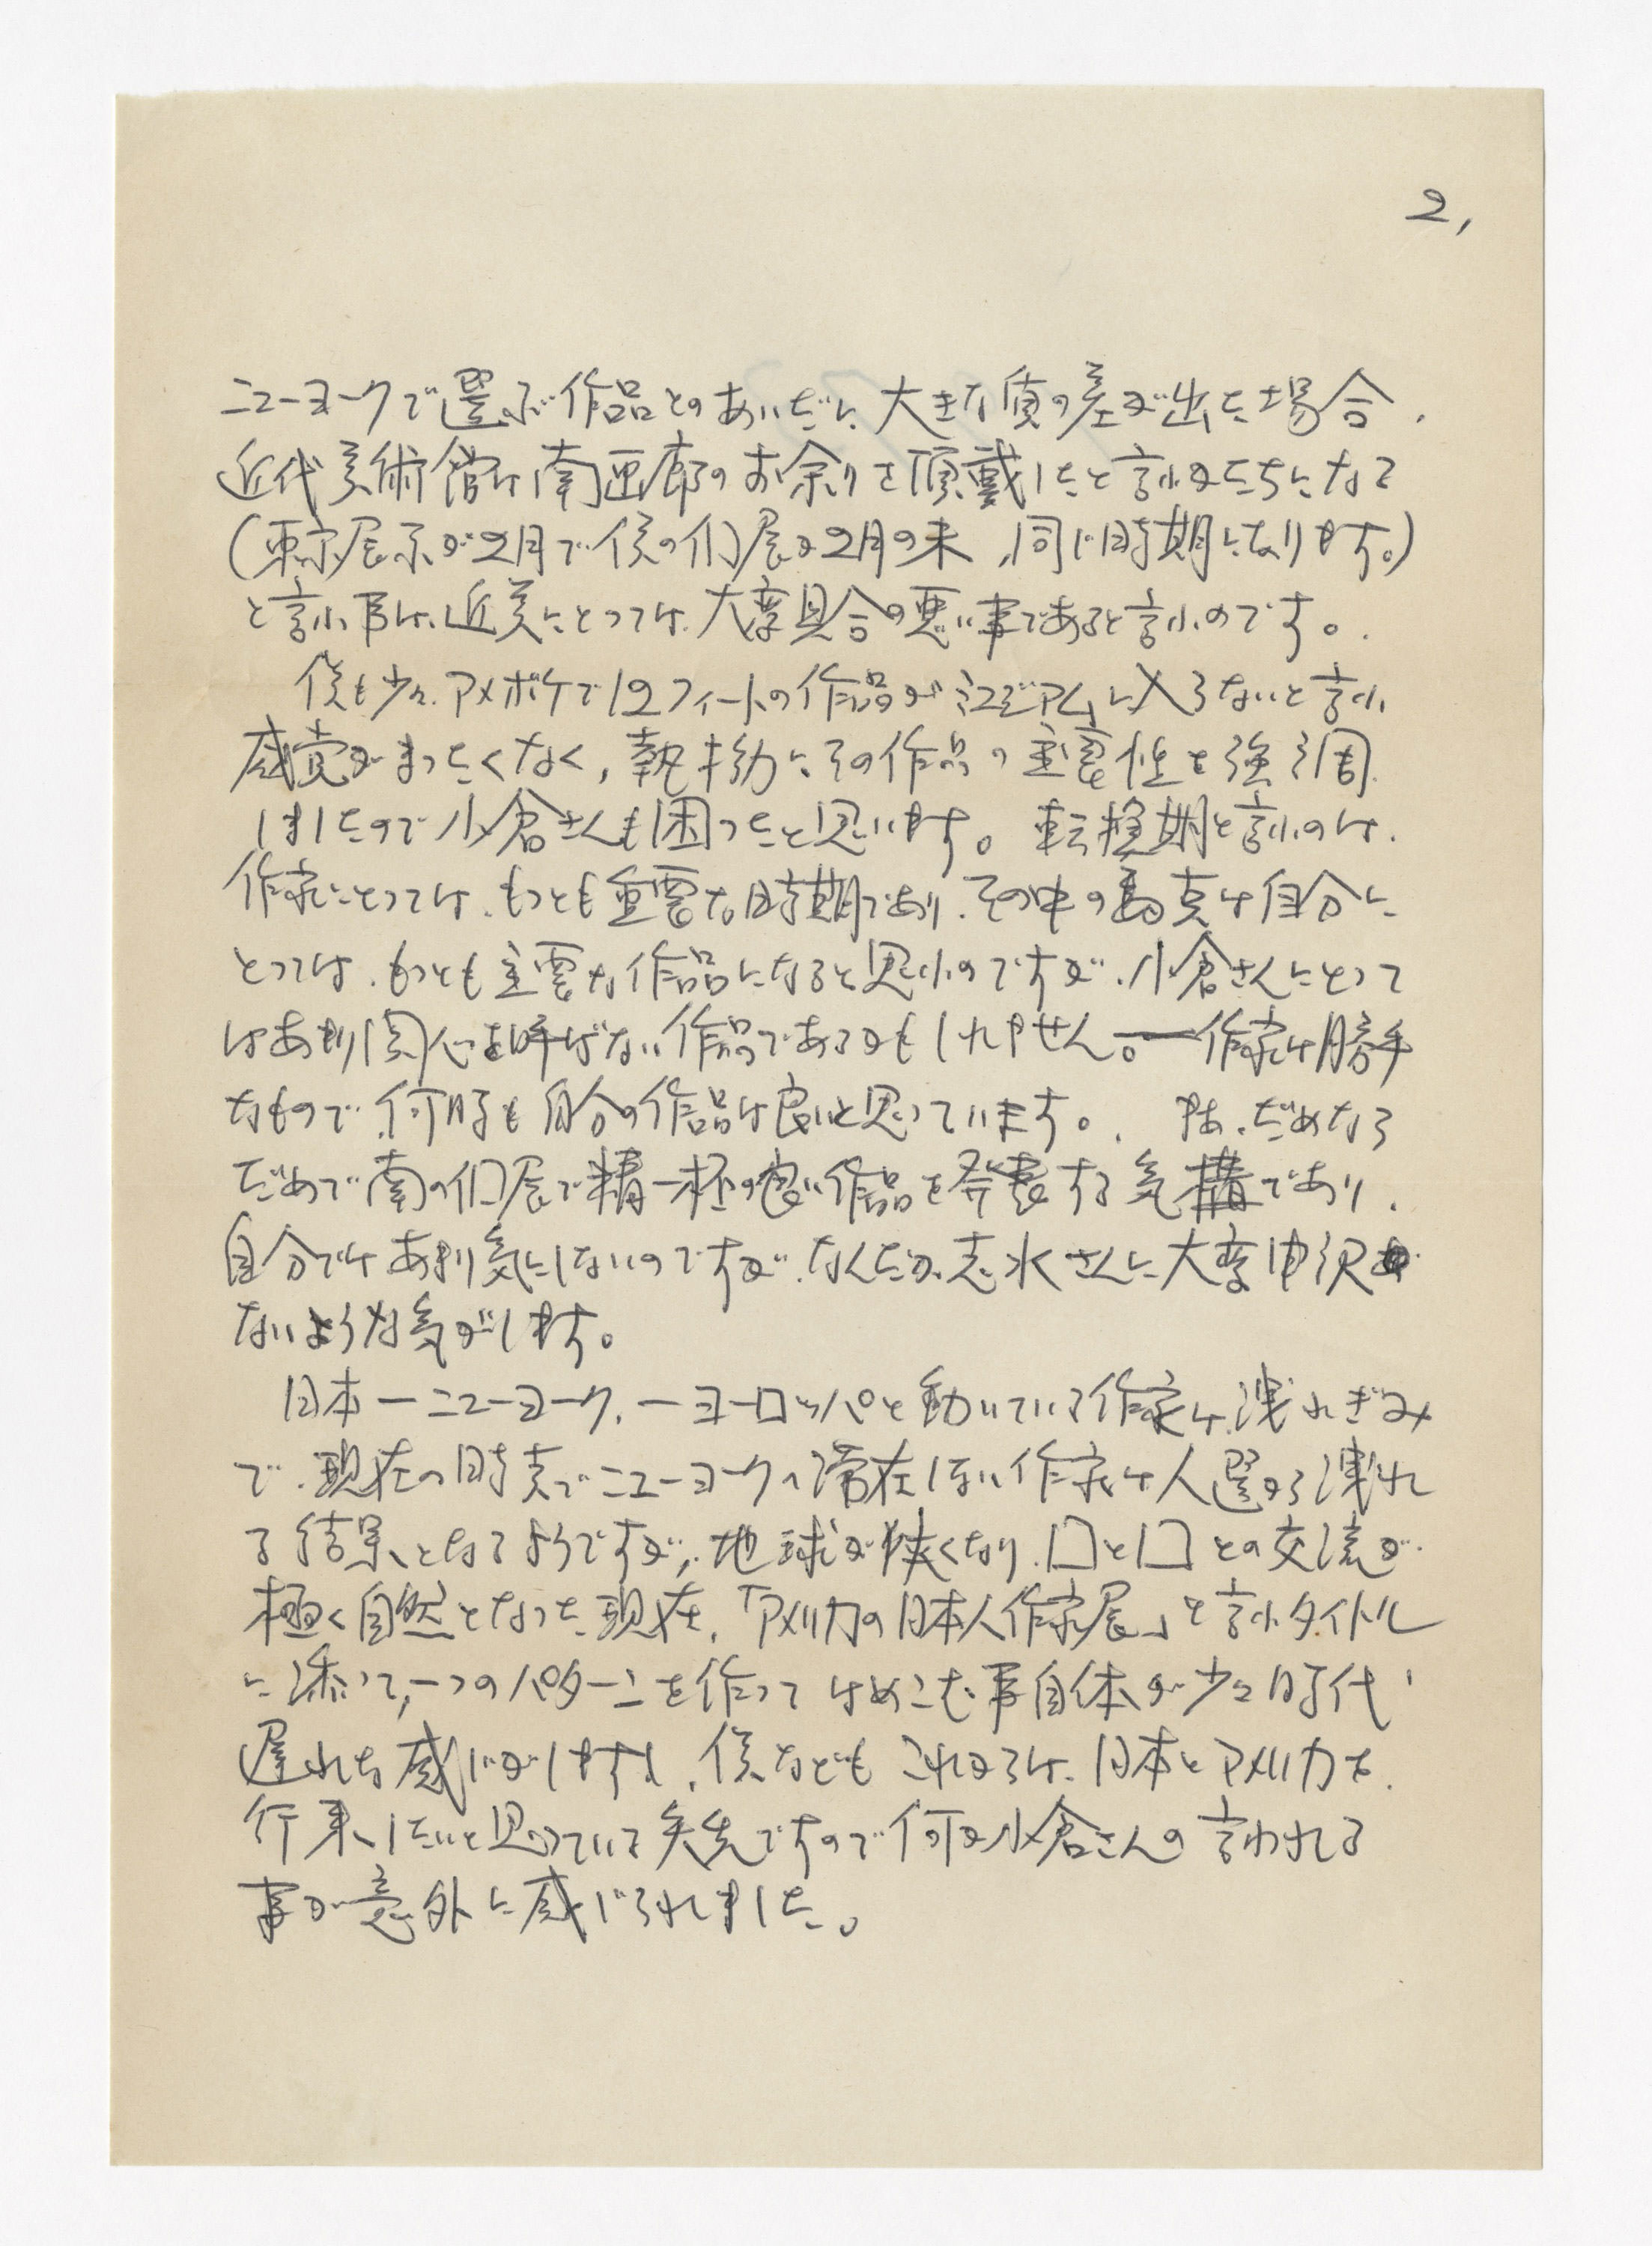 2,
ニューヨークで選ぶ作品とのあいだに、大きな質の差が出た場合、
近代美術館は南画廊のお余りを頂戴したと言ふかたちになる
(東京展示が2月で僕の個展が2月の末、同じ時期になります。)
と言ふ事は、近美にとっては、大変具合の悪い事であると言ふのです。
僕も少々、アメボケで12フィートの作品がミュージアムに入らないと言ふ
感覚がまったくなく、執拗にその作品の重要性を強調
しましたので小倉さんも困ったと思います。転換期と言ふのは、
作家にとっては、もっとも重要な時期であり、その中の 点は自分に
とっては、もっとも主要な作品になると思ふのですが、小倉さんにとって
はあまり関心を呼ばない作品であるかもしれません。作家は勝手
なもので、何時も自分の作品は良いと思っています。 まあ、だめなら
だめで南の個展で精一杯の良い作品を発表する気構であり、
自分ではあまり気にしないのですが、なんだか、志水さんに大変申訳が
ないような気がします。
日本ーニューヨーク、ーヨーロッパと動いている作家は、洩れぎみ
で、現在の時点でニューヨークへ滞在しない作家は人選から洩れ
る結果となるようですが、地球が狭くなり、口と口との交流が
極く自然となった現在、「アメリカの日本人作家展」と言ふタイトル
に添って、一つのパターンを作ってはめこむ事自体が少々時代
遅れな感じがしますし、僕なども これからは、日本とアメリカを、
行来したいと思っている矢先ですので何か小倉さんの言われる
事が意外に感じられました。